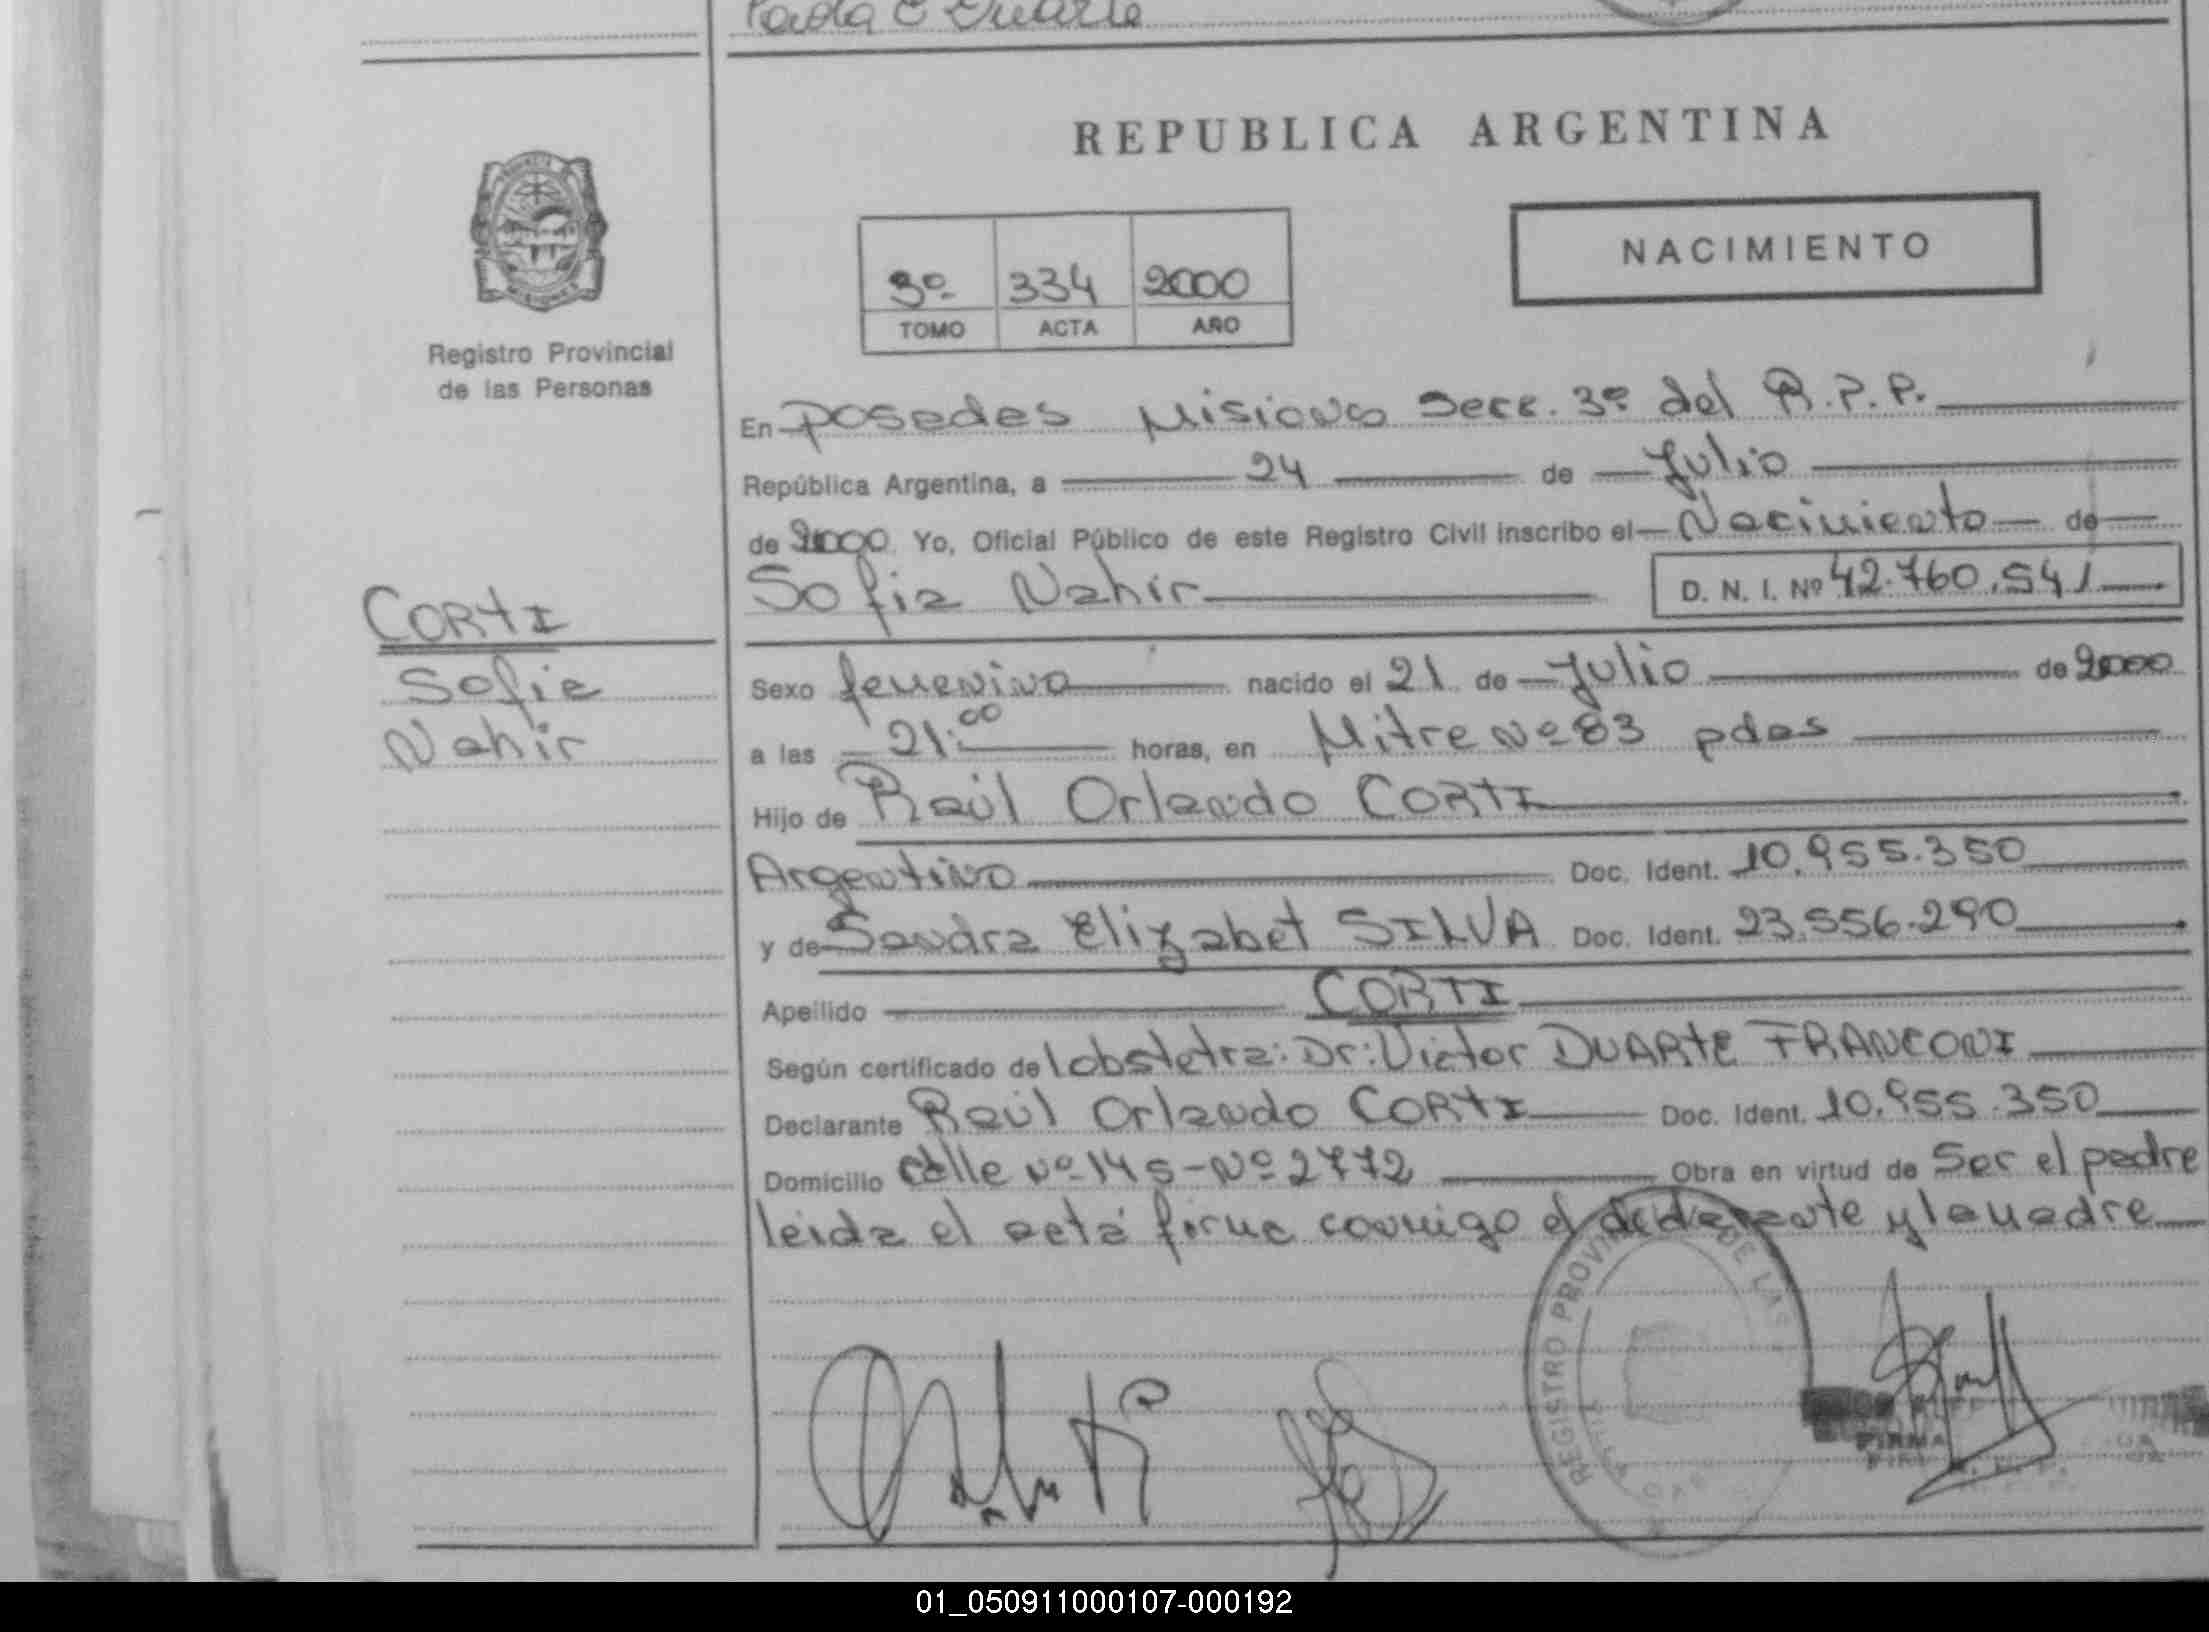 Paola C Duarte
REPUBLICA ARGENTINA
NACIMIENTO
3º 334 2000
TOMO ACTA AÑO
Registro Provincial
de las Personas
En Posadas Misiones Secc. 3º del R.P.P.
República Argentina, a 24 de Julio
de 2000 Yo, Oficial Público de este Registro Civil inscribo el Nacimiento de
Sofia Nahir D. N. I. Nº 42.760.541
CORTI
Sofia
Nahir
Sexo femenino nacido el 21 de Julio de 2000
a las 21:00 horas, en Mitre Nº 83 pdas
Hijo de Raúl Orlando CORTI
Argentino Doc. Ident. 10.955.350
y de Sandra Elizabet SILVA Doc. Ident. 23.556.290
Apellido CORTI
Según certificado de lobstetra: Dr: Victor DUARTE FRANCONI
Declarante Raúl Orlando CORTI Doc. Ident. 10.955.350
Domicilio calle Nº 145 - Nº 2772 Obra en virtud de Ser el padre
leida el acta firma conmigo el declarante y la madre
REGISTRO PROVINCIAL DE LAS
FIRMA
01_050911000107-000192